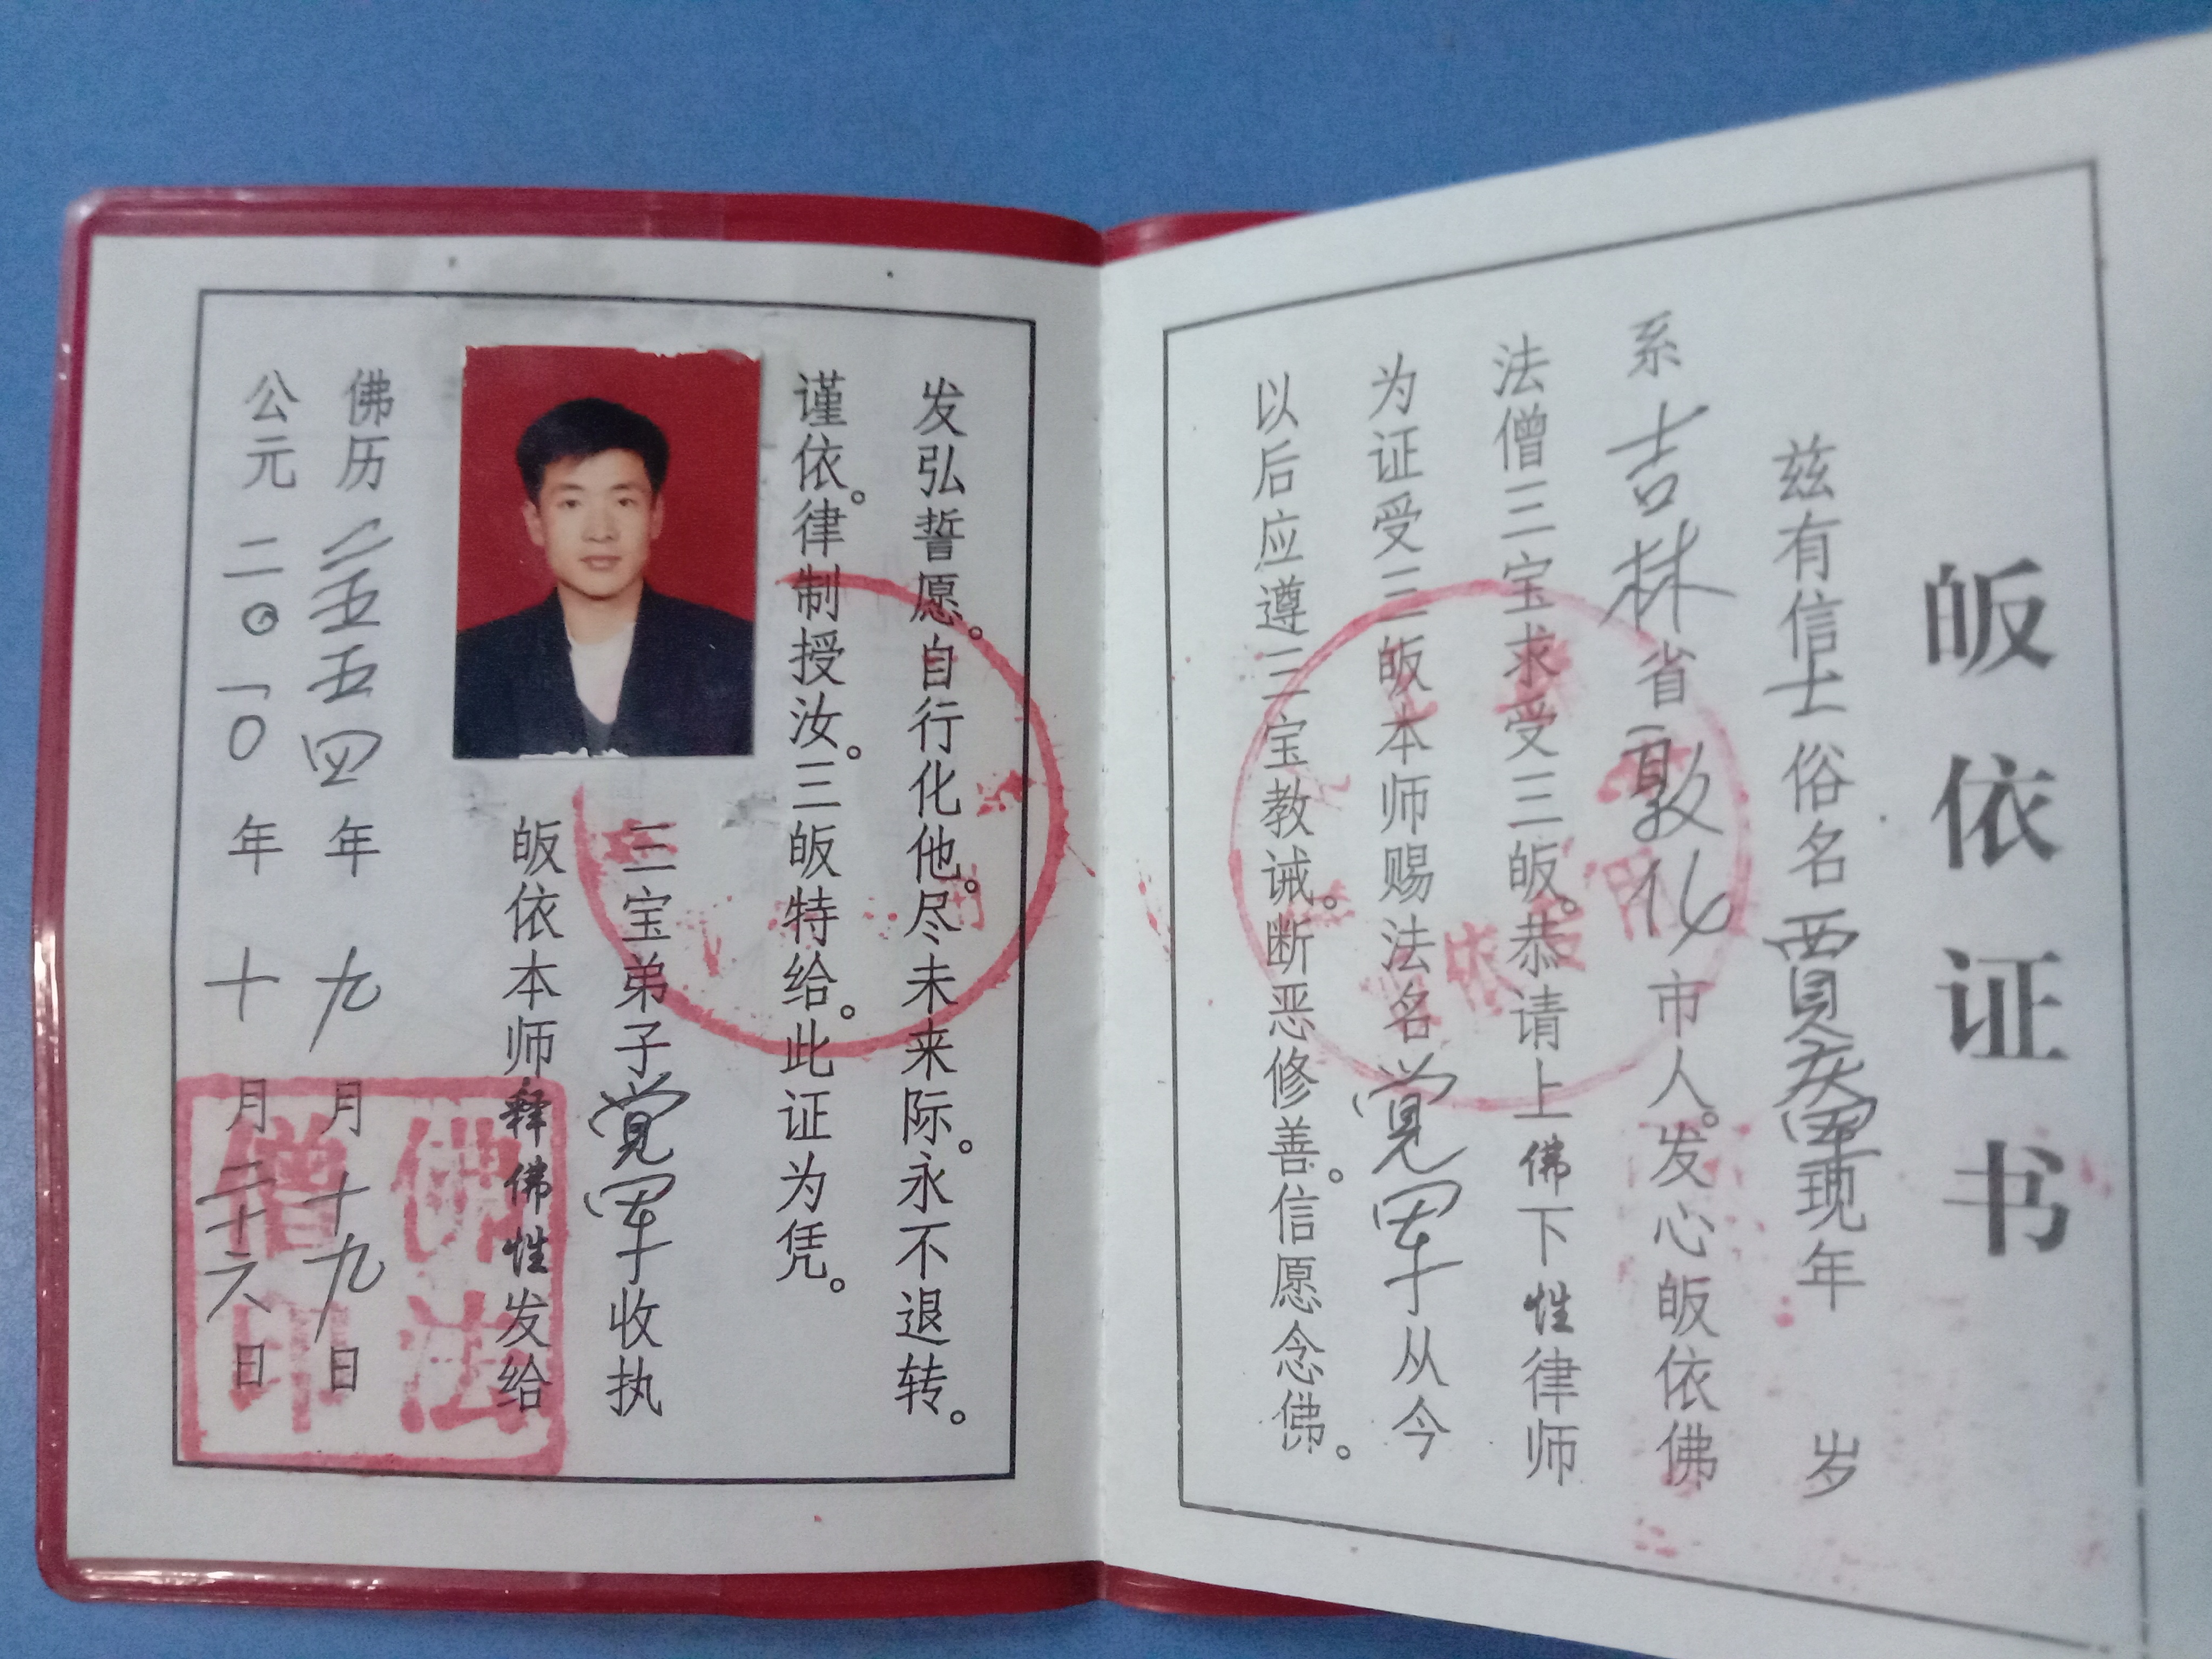 皈依证书
兹有信士俗名贾庆军现年 岁
系吉林省敦化市人。发心皈依佛
法僧三宝求受三皈。恭请上佛下性律师
为证受三皈本师赐法名觉军从今
以后应遵三宝教诫。断恶修善。信愿念佛。
发弘誓愿。自行化他。尽未来际。永不退转。
谨依。律制授汝。三皈特给。此证为凭。
三宝弟子觉军收执
皈依本师释佛性发给
佛历二五五四年九月十九日
公元二〇一〇年十月二十六日
佛法
僧印